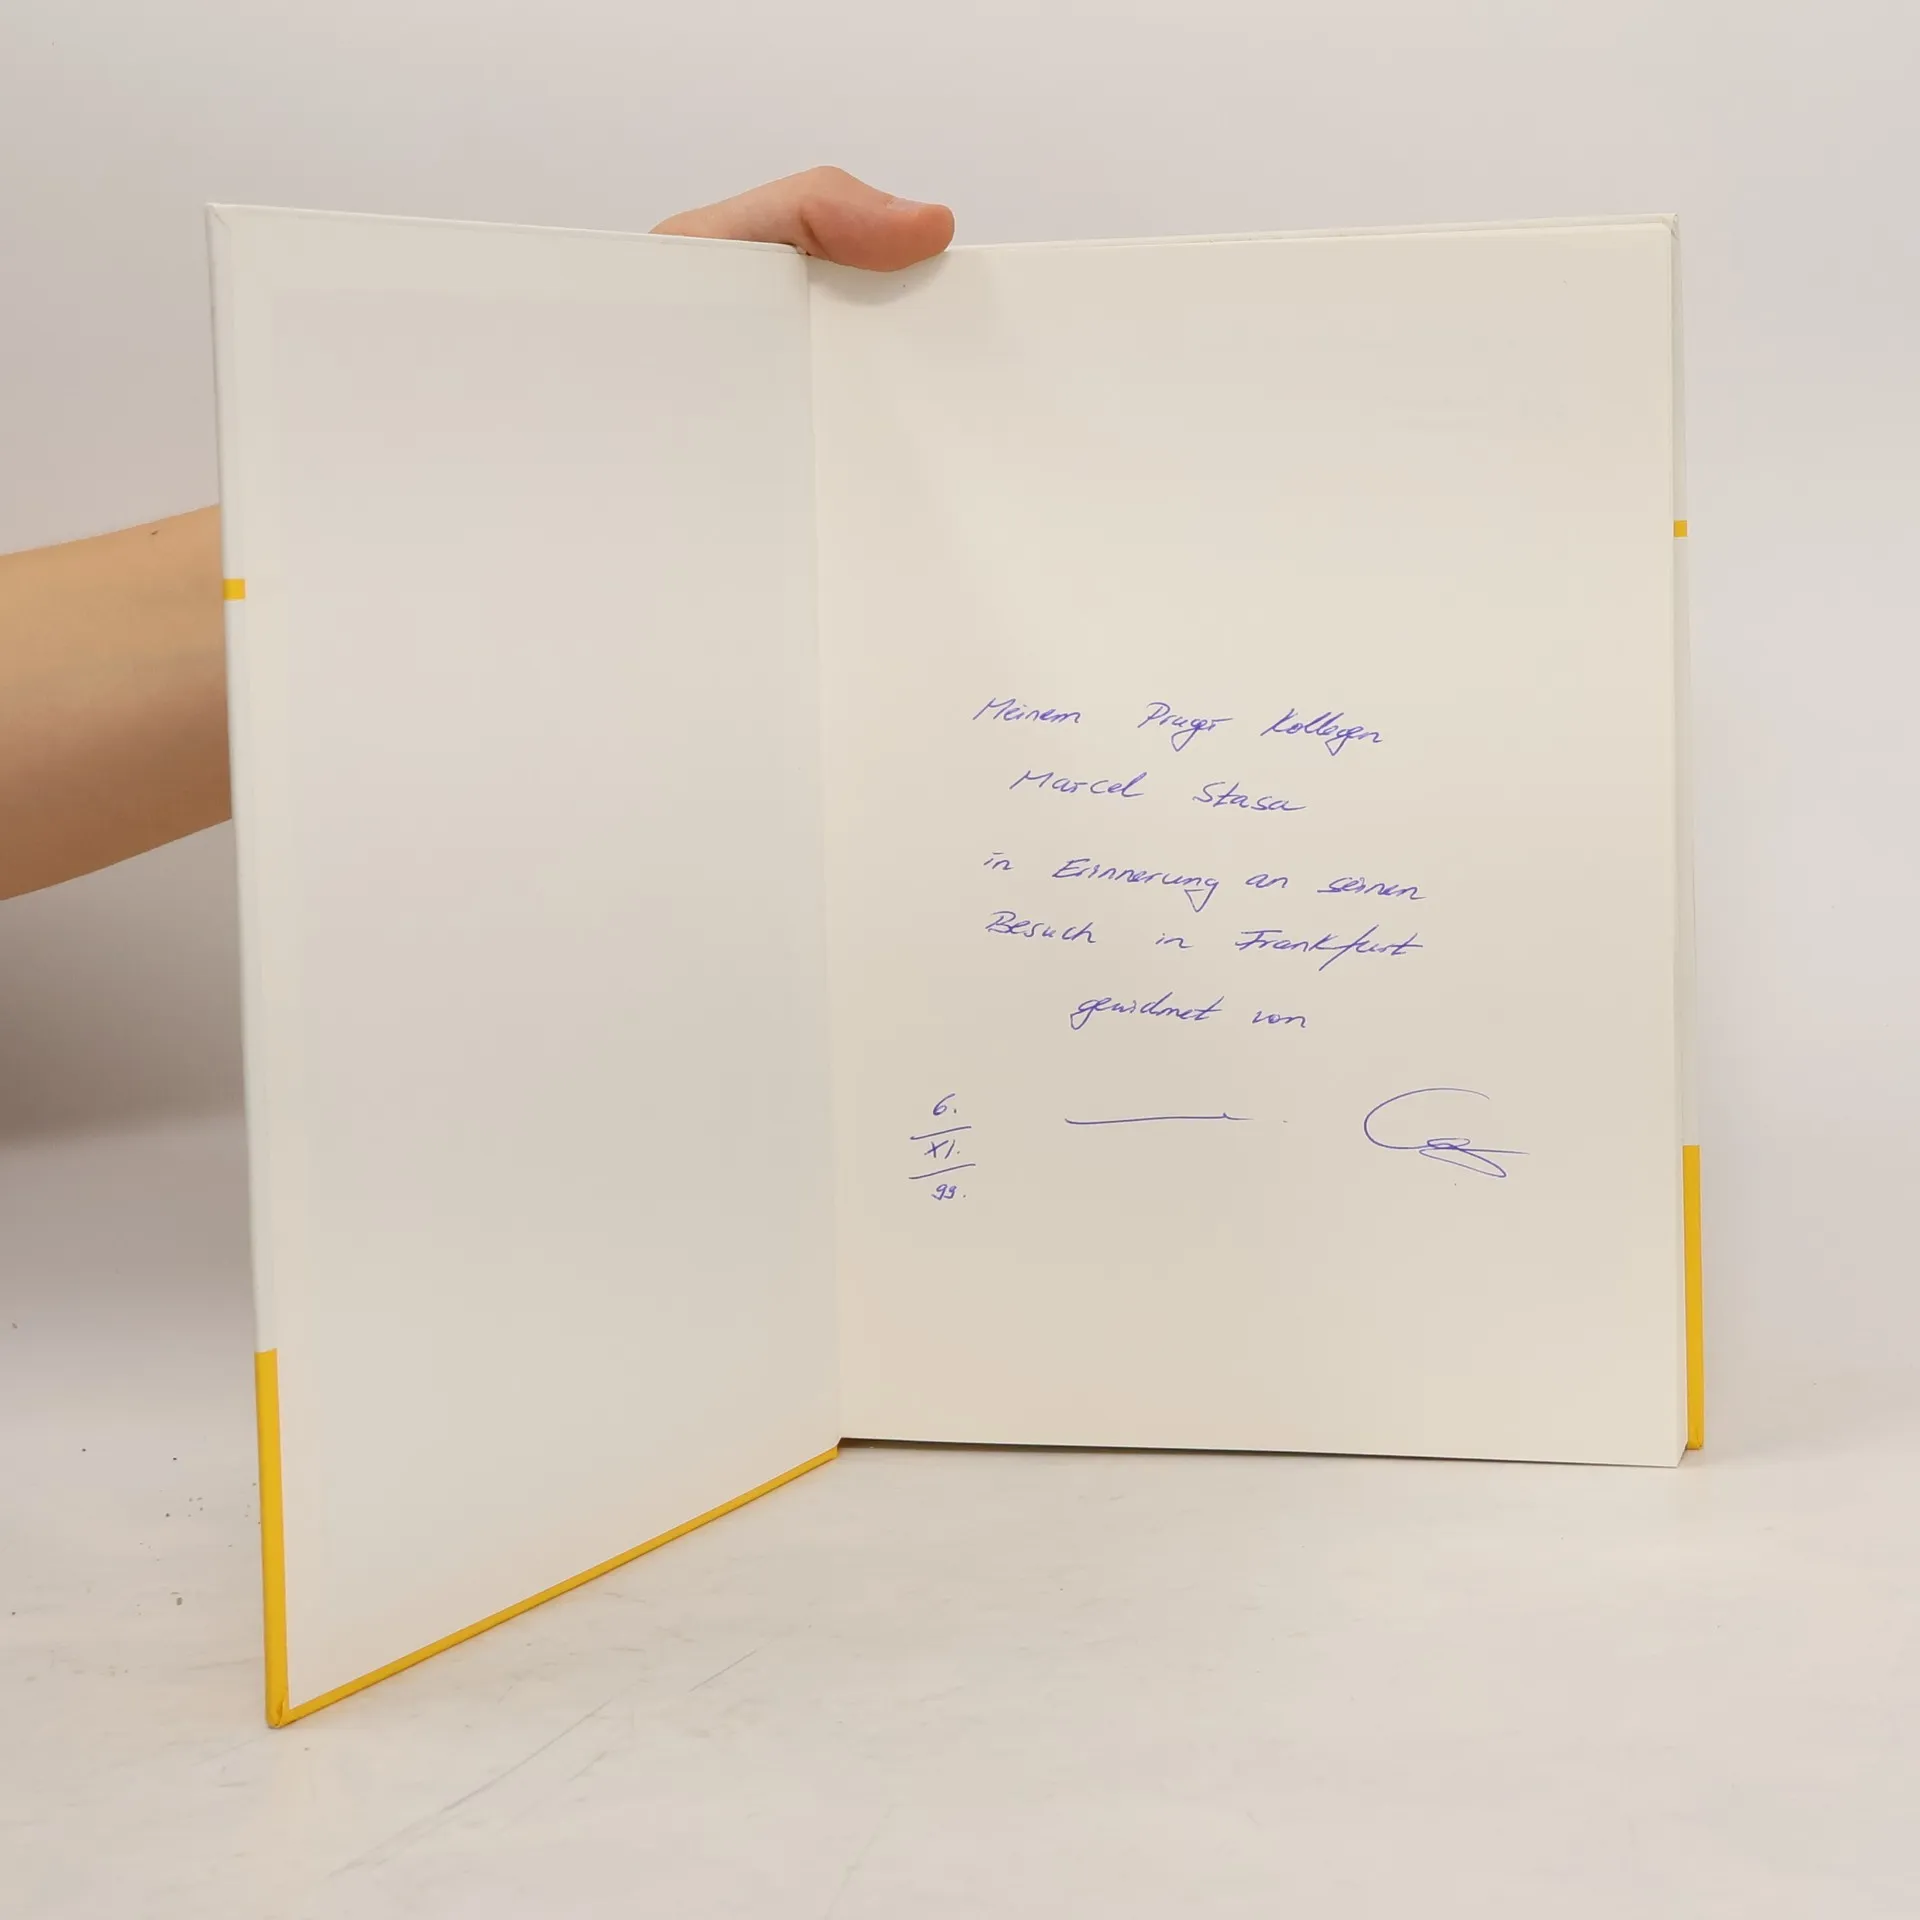 Meinem Prager Kollegen
Marcel Stasa
in Erinnerung an seinen
Besuch in Frankfurt
gewidmet von
6.
XI.
93.